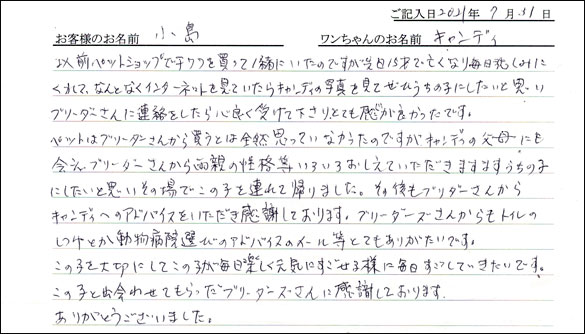 ご記入日2021年 7月 31日
お客様のお名前 小島 ワンちゃんのお名前 キャンディ
以前ペットショップでチワワを買って一緒にいたのですが 15才で亡くなり毎日悲しみに
くれて、なんとなくインターネットを見ていたらキャンディの写真を見てぜひうちの子にしたいと思い
ブリーダーさんに連絡をしたら心良く受けて下さりとても感じが良かったです。
ペットはブリーダーさんから買うとは全然思っていなかったのですがキャンディの父母にも
会えブリーダーさんから両親の性格等いろいろおしえていただきますますうちの子
にしたいと思いその場でこの子を連れて帰りました。その後もブリダーさんから
キャンディへのアドバイスをいただき感謝しております。ブリーダーズさんからもトイレの
しつけとか動物病院選びのアドバイスのメール等とてもありがたいです。
この子を大切にしてこの子が毎日楽しく元気にすごせる様に毎日すごしていきたいです。
この子と出会わせてもらったブリーダーズさんに感謝しております。
ありがとうございました。